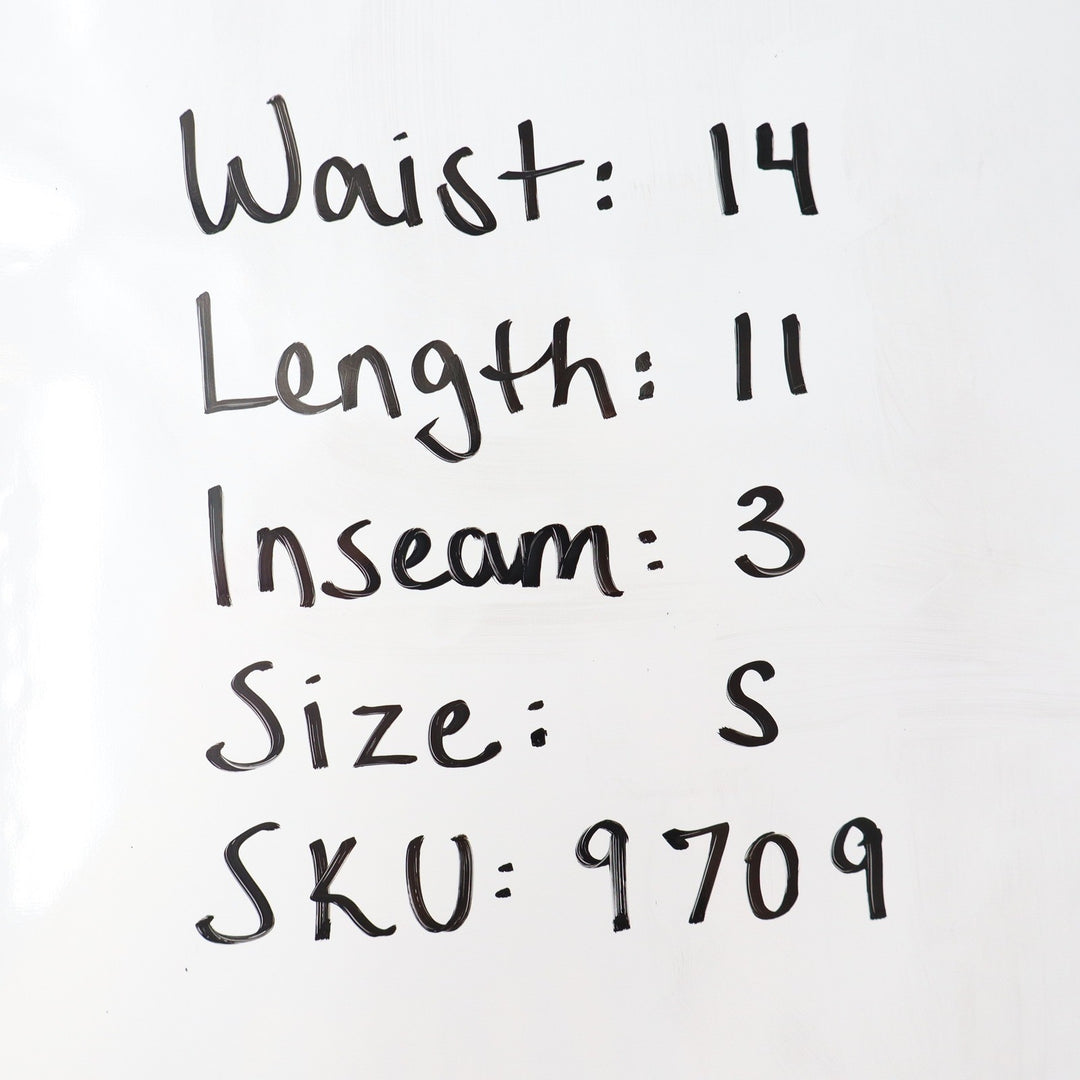 Waist: 14
Length: 11
Inseam: 3
Size: S
SKU: 9709